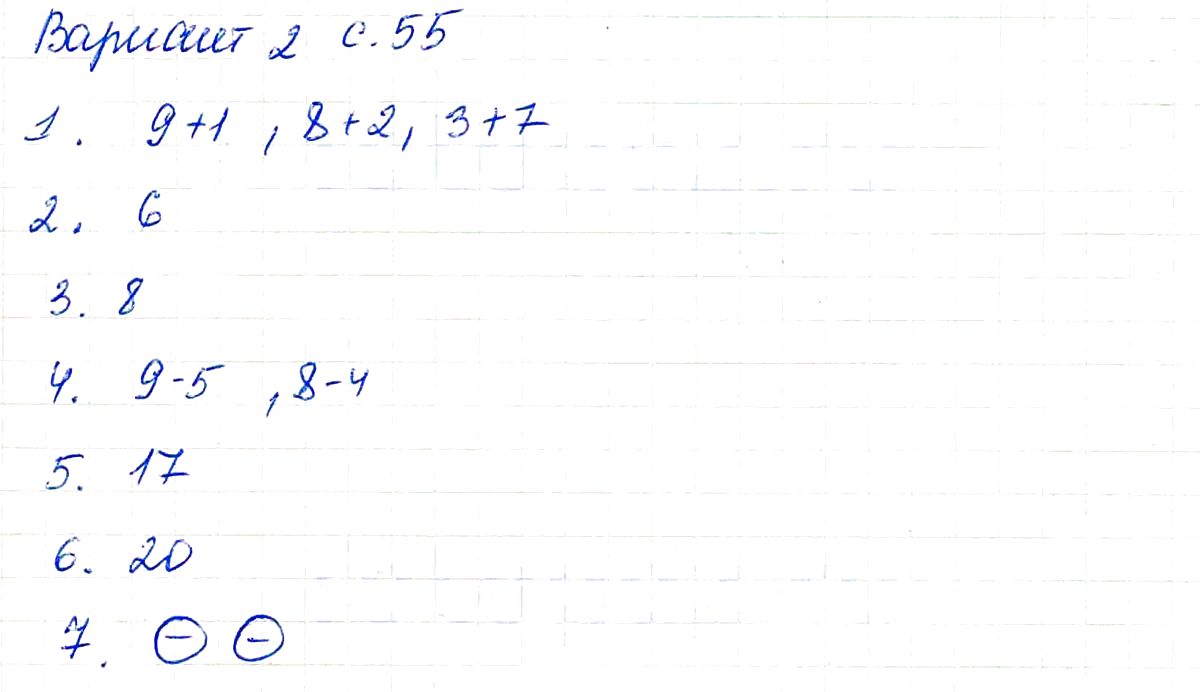 Вариант 2 с. 55
1. 9+1 , 8+2, 3+7
2. 6
3. 8
4. 9-5 , 8-4
5. 17
6. 20
7. ⊖ ⊖